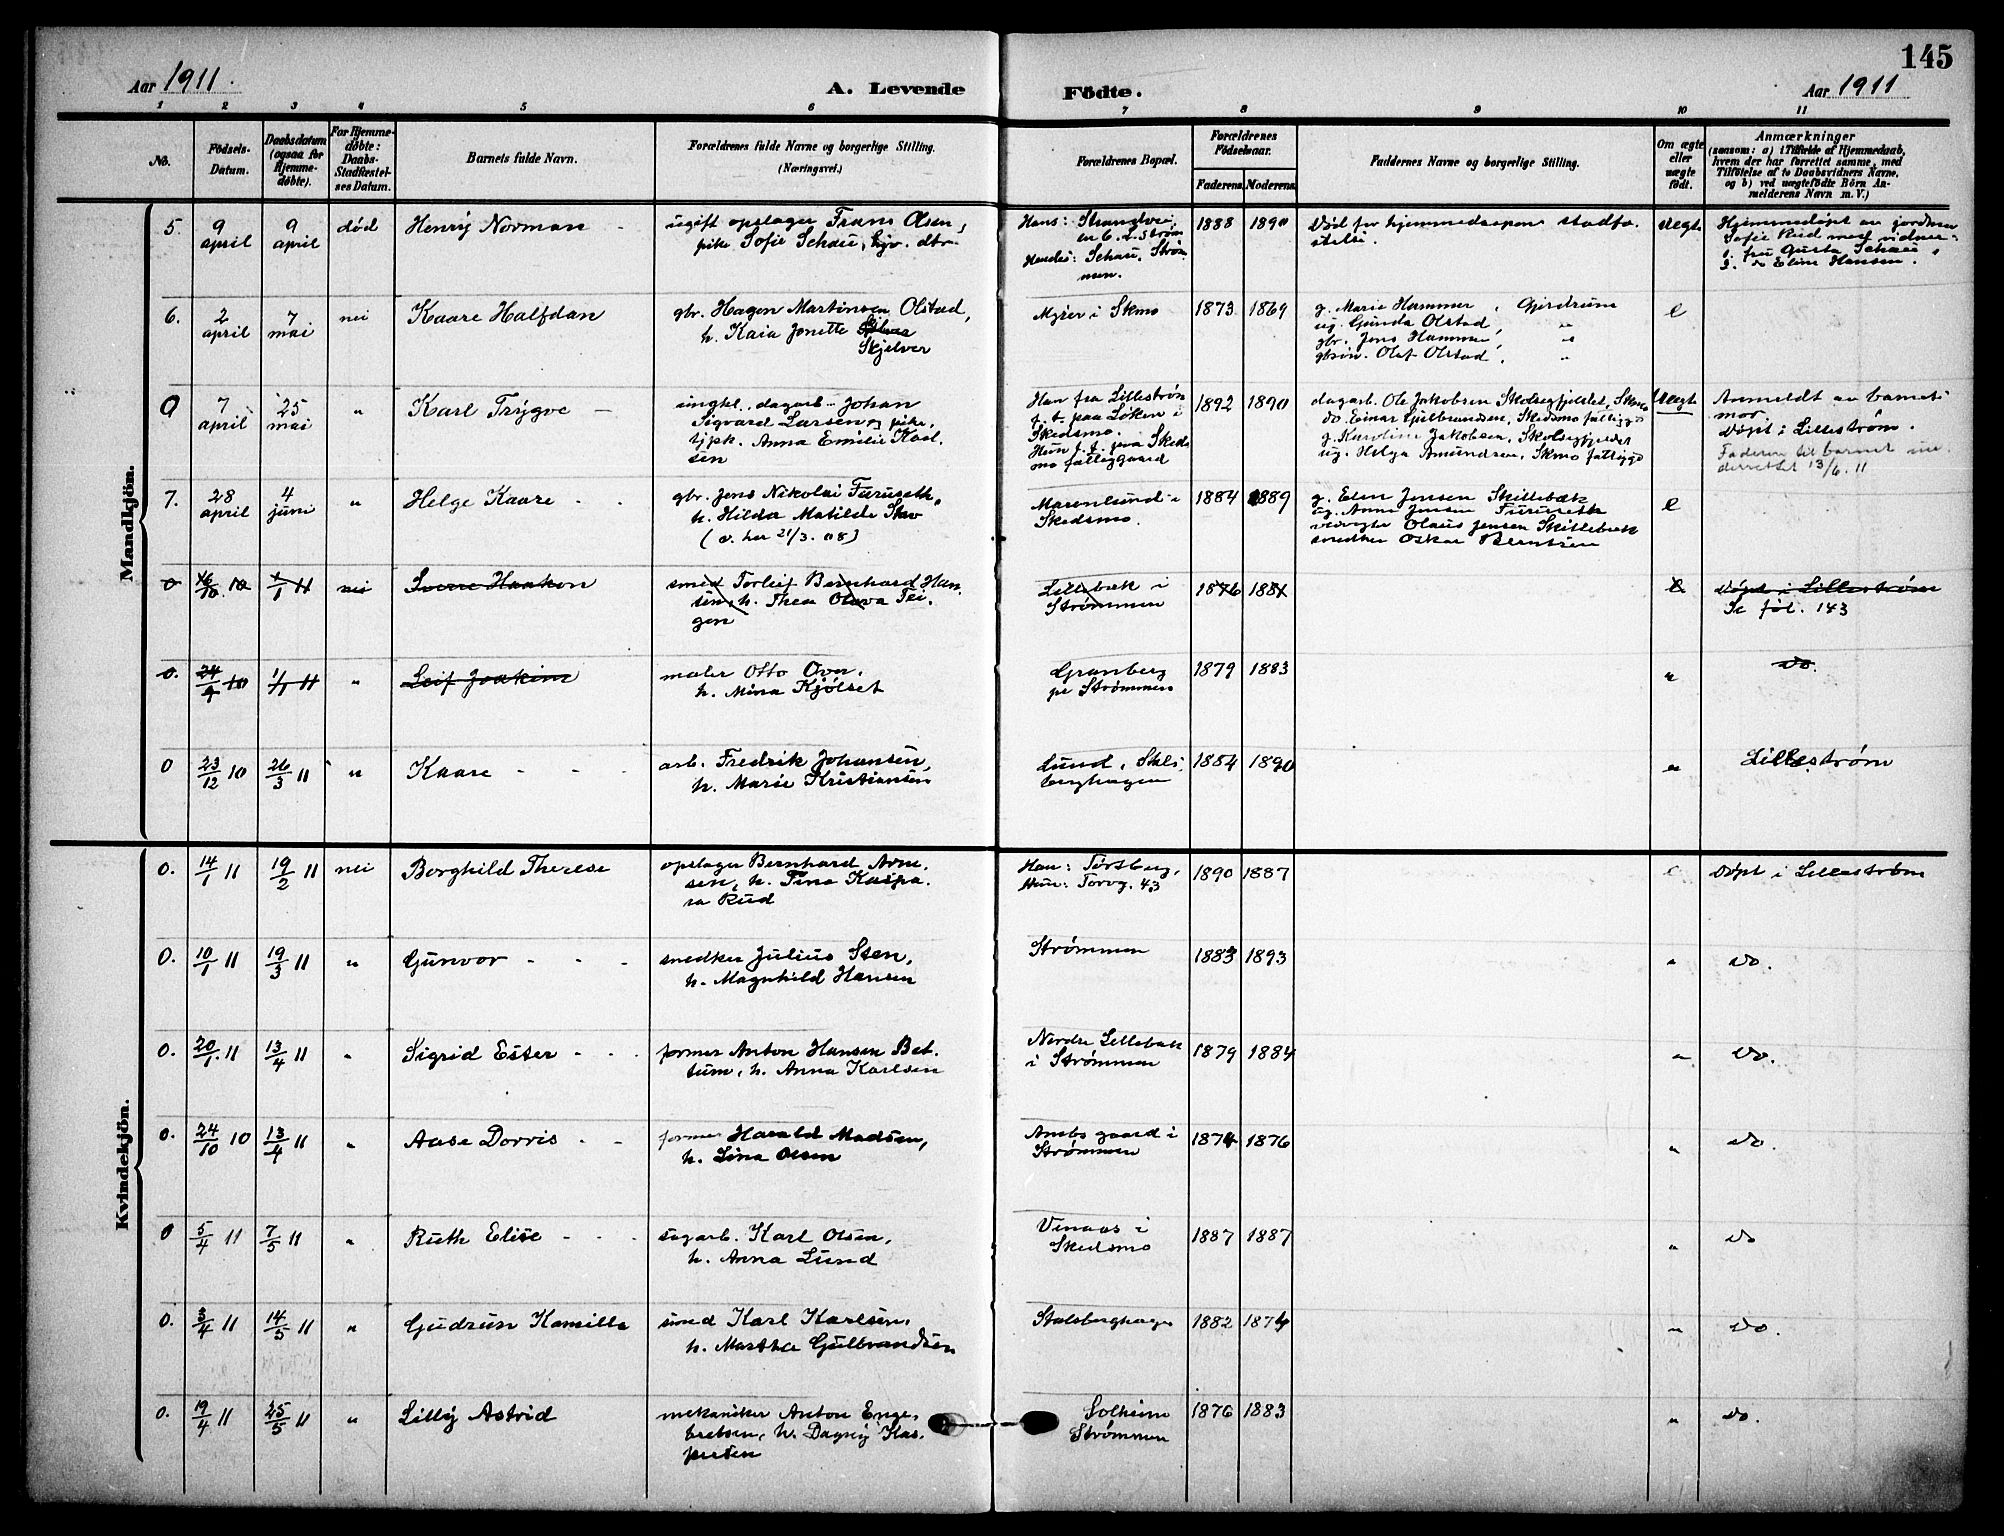 145
Aar 1911.
A. Levende Födte.
Aar 1911
1 2 3 4 5 6 7 8 9 10 11
No.
Födsels-
Datum.
Daabsdatum
(ogsaa for
Hjemme-
döbte).
For Hjemme-
döbte:
Daabs-
Stadfæstel-
ses Datum.
Barnets fulde Navn.
Forældrenes fulde Navne og borgerlige Stilling.
(Næringsvei.)
Forældrenes Bopæl.
Forældrenes
Födselsaar.
Faderens.
Moderens.
Faddernes Navne og borgerlige Stilling.
Om ægte
eller
uægte
født.
Anmærkninger
(saasom: a) i Tilfælde af Hjemmedaab,
hvem der har forrettet samme, med
Tilföielse af to Daabsvidners Navne,
og b) ved uægtefödte Börn An-
melderens Navn m. V.)
Mandkjön.
5. 9 april 9 april död Henrij Norman -
ugift opslager Frans Olsen,
pike Sofie Schau, hjv. dtr.
Hans: Strangvei,
Hendes: Schau, Strøm
men.
1888 1890
Död før hjemmedaapens stadfæ
stelse.
Uegte
Hjemmedøpt av jordmor
Sofie Rud med vidner:
1. fru Gusta Schau,
2. do Eline Hansen.
6. 2 april 7 mai nei Kaare Halfdan
gbr. Hagen Martinsen Olstad,
h. Kaia Jonette
Skjelver
Myrer i Skmo
1873 1869
g. Marie Hammer, Gjerdrum
ug. Gunda Olstad, "
gbr. Jens Hammer, "
gbsön. Olaf Olstad, "
e
0 7 april 25 mai " Karl Trygve -
ungkl., dagarb. Johan
Sigvard Larsen og pike,
tjpk. Anna Emilie Karl
sen
Han fra Lillestrøm
f. t. paa Løken i
Skedsmo.
Hun f. t. paa Skeds
mo fattiggaard
1892 1890
dagarb. Ole Jakobsen Skolsegfjeldet, Skmo
do Einar Gulbrandsen, Skedsmo fattigg.
g. Karoline Jakobsen, Skolsegfjeldet
ug. Helga Amundsen, Skmo fattigg.
Uegte
Anmeldt av barnets
mor.
Døpt i Lillestrøm.
Faderen til barnet un
derrettet 13/6. 11
7. 28 april 4 juni " Helge Kaare - -
gbr. Jens Nikolai Furuseth,
h. Hilda Matilde
(v. her 21/3. 08)
Marenlund i
Skedsmo.
1884 1889
g. Elen Jensen Skillebæk
ug. Anna Jensen Furuseth
Olaus Jensen Skillebæk
snedker Oskar Berntsen
e
0 16/10 10 1/1 11 nei Sverre Haakon
smed Torleif Bernhard Han
sen, h. Thea Olava Tei
gen
Lillebæk i
Strømmen
1876 1881
e
Døpt i Lillestrøm
Se fol. 143
0. 24/9 10 1/1 11 " Leif Joakim
maler Otto Ovn.
h. Mina Kjølset
Granberg
pr Strømmen
1879 1883
"
do.
0 23/12 10 26/3 11 " Kaare - - -
arb. Fredrik Johansen,
h. Marie Kristiansen
Lund, Skels
berghagen
1884 1890
"
Lillestrøm
Kvindekjön.
0. 14/1 11 19/2 11 nei Borghild Therese
opslager Bernhard Arne
sen, h. Tina Kaspa
ra Rud
Han: Torsberg,
Hun: Torvg. 43
1890 1887
e
Døpt i Lillestrøm
0. 10/1 11 19/3 11 " Gunvor - - -
snedker Julius Sten,
h. Magnhild Hansen
Strømmen
1883 1893
"
do.
0. 20/1 11 13/4 11 " Sigrid Ester - - -
former Anton Hansen Bet
tum, h. Anna Karlsen
Nordre Lillebæk
i Strømmen
1879 1884
"
do.
0. 24/10 10 13/4 11 " Aase Dorris - -
former Harald Madsen,
h. Lina Olsen
gaard i
Strømmen
1874 1876
"
do.
0 5/4 11 7/5 11 " Ruth Elise - - -
sagarb. Karl Olsen,
h. Anna Lund
Vinaas i
Skedsmo
1887 1887
"
do
0. 3/4 11 14/5 11 " Gudrun Kamilla
smed Karl Karlsen,
h. Martha Gulbrandsen
Stalsberghagen
1882 1874
"
do.
0. 19/4 11 25/5 11 " Lilly Astrid
mekaniker Anton Enge
bretsen, h. Dagny Kas
persen
Solheim
Strømmen
1876 1883
"
do.